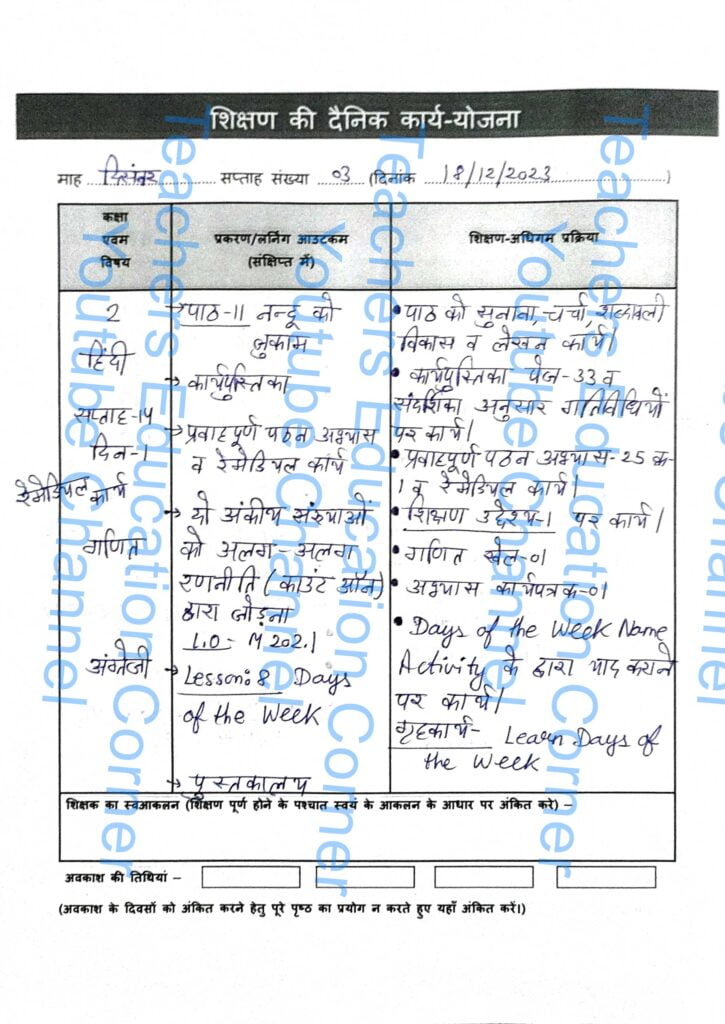 शिक्षण की दैनिक कार्य-योजना
माह दिसंबर सप्ताह संख्या 03 (दिनांक 18/12/2023)
कक्षा
एवम
विषय
प्रकरण/लर्निंग आउटकम
(संक्षिप्त में)
शिक्षण-अधिगम प्रक्रिया
2
हिंदी
सप्ताह-14
दिन-1
रेमेडियल कार्य
गणित
अंग्रेजी
→ पाठ-11 नन्दू को
जुकाम
→ कार्यपुस्तिका
→ प्रवाहपूर्ण पठन अभ्यास
व रेमेडियल कार्य
→ दो अंकीय संख्याओं
को अलग-अलग
रणनीति (काउंट ऑन)
द्वारा जोड़ना
L.O- M 202.1
→ Lesson: 8 Days
of the Week
→ पुस्तकालय
• पाठ को सुनाना, चर्चा, शब्दावली
विकास व लेखन कार्य।
• कार्यपुस्तिका पेज-33 व
संदर्शिका अनुसार गतिविधियों
पर कार्य।
• प्रवाहपूर्ण पठन अभ्यास-25 क-
1 व रेमेडियल कार्य।
• शिक्षण उद्देश्य-1 पर कार्य।
• गणित खेल-01
• अभ्यास कार्यपत्रक-01
• Days of the Week Name
Activity के द्वारा याद कराने
पर कार्य।
गृहकार्य- Learn Days of
the Week
शिक्षक का स्वआकलन (शिक्षण पूर्ण होने के पश्चात स्वयं के आकलन के आधार पर अंकित करे) –
अवकाश की तिथियां –
(अवकाश के दिवसों को अंकित करने हेतु पूरे पृष्ठ का प्रयोग न करते हुए यहाँ अंकित करें।)
Teachers Education Corner
Youtube Channel
Teachers Education Corner
Youtube Channel
Teachers Education Corner
Youtube Channel